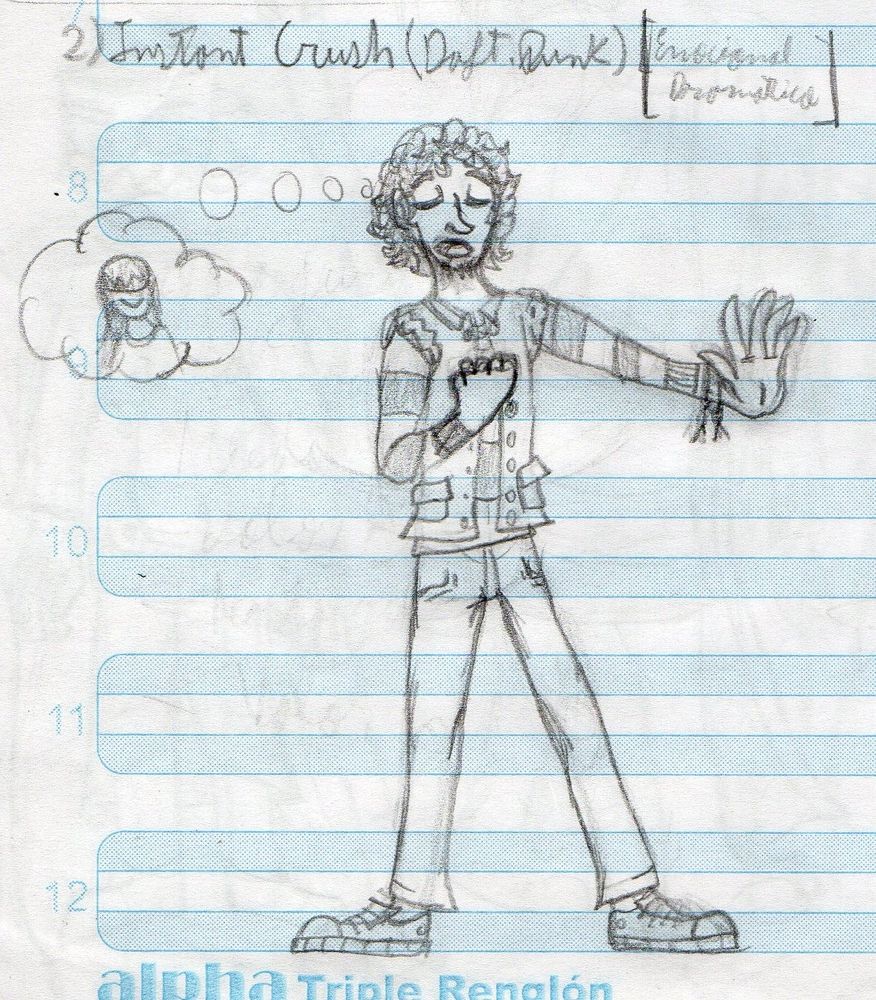 2) Instant Crush (Daft Punk) [Emocional
Dramática]
8
9
10
11
12
alpha Triple Renglón